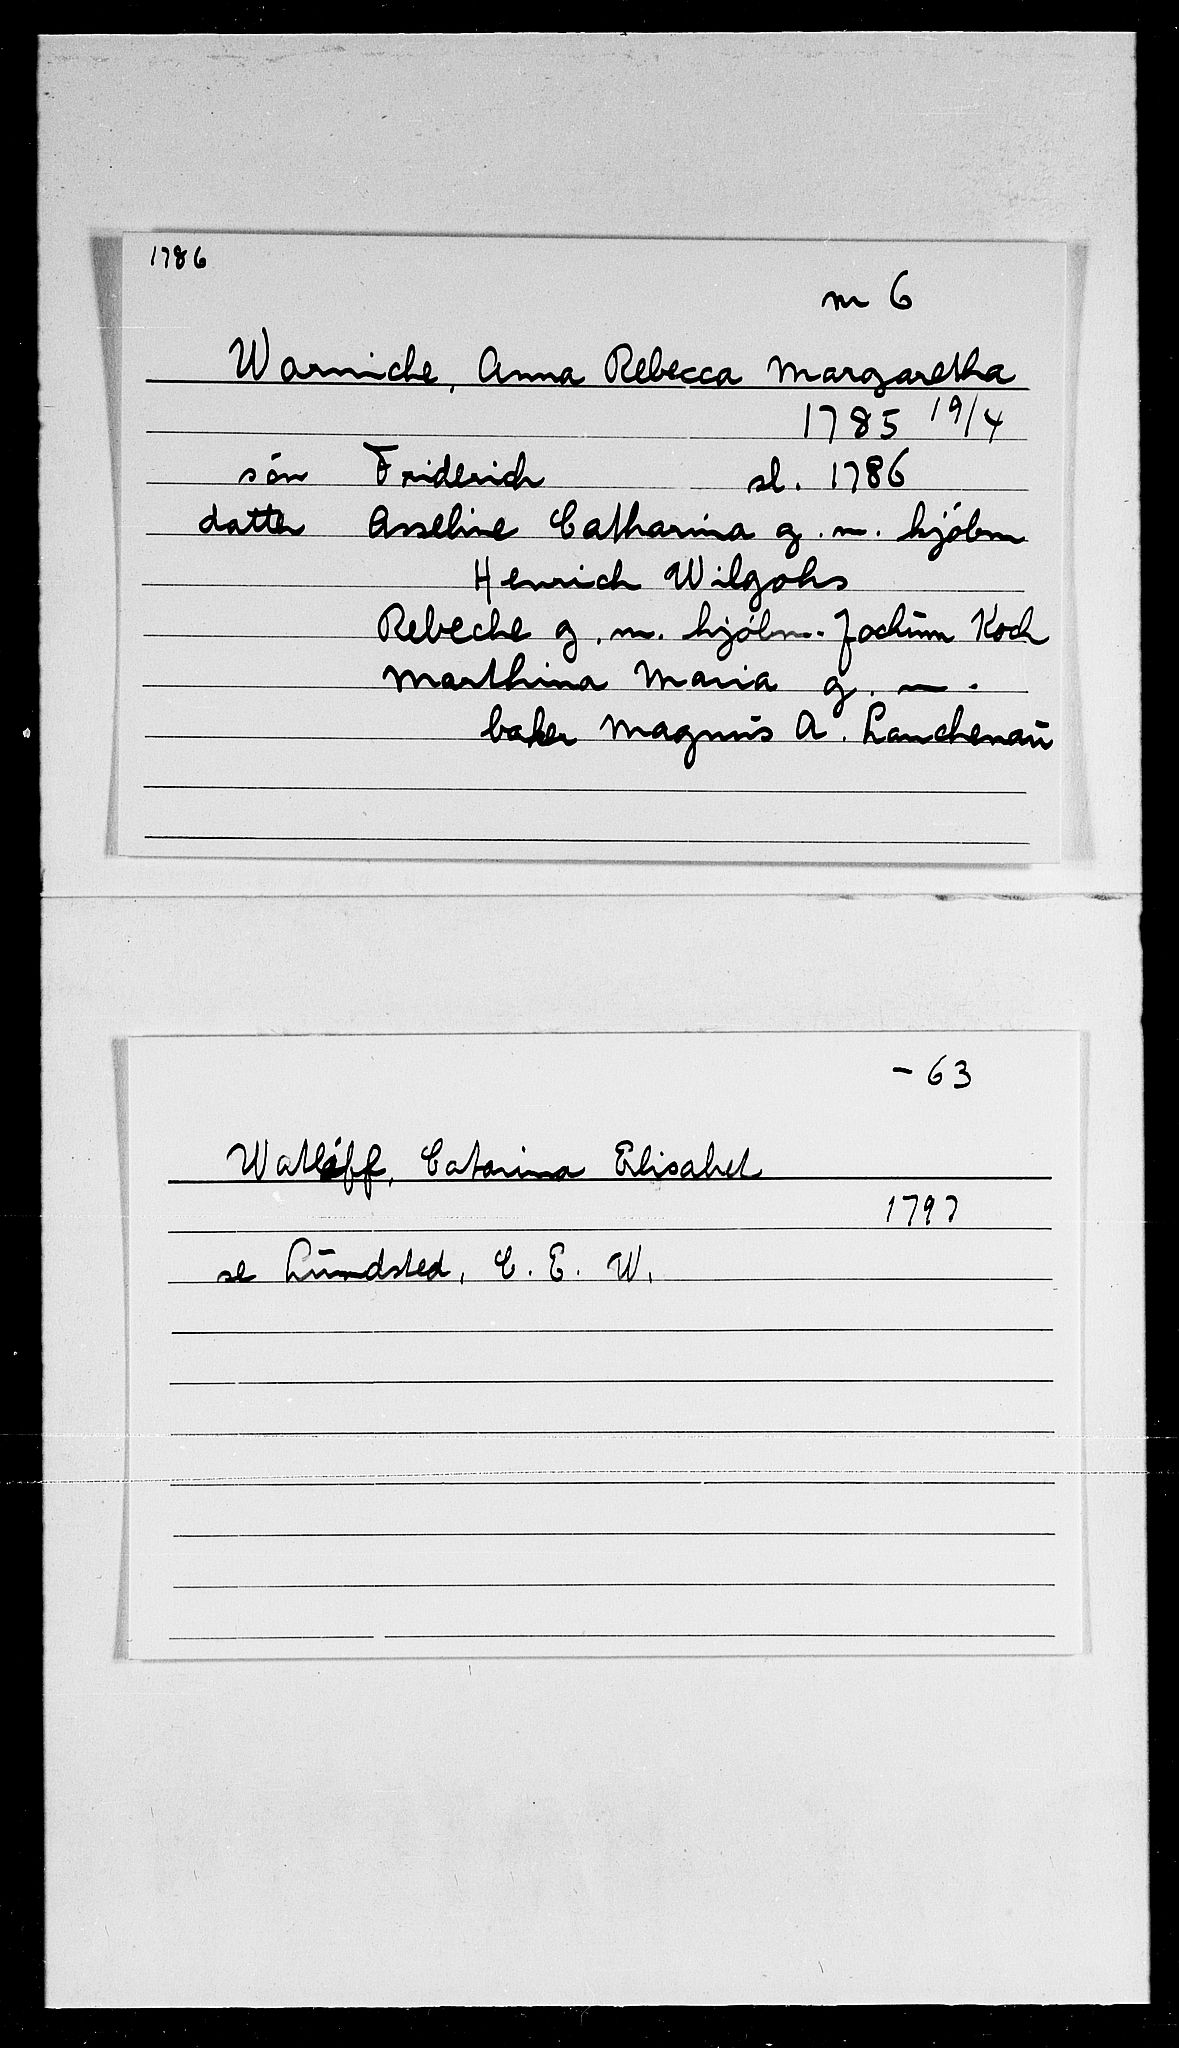 1786
m 6
Warniche, Anna Rebecca Margaretha
1785 19/4
sön Friderich sl. 1786
datter Asseline Catharina g. m. kjöbm
Henrich Wilgohs
Rebeche g. m. kjöbm. Jochum Koch
Marthina Maria g. — .
baker Magnus A. Lauchenau
- 63
Catarina Elisabet
1797
se Lundsted, C. E. W.